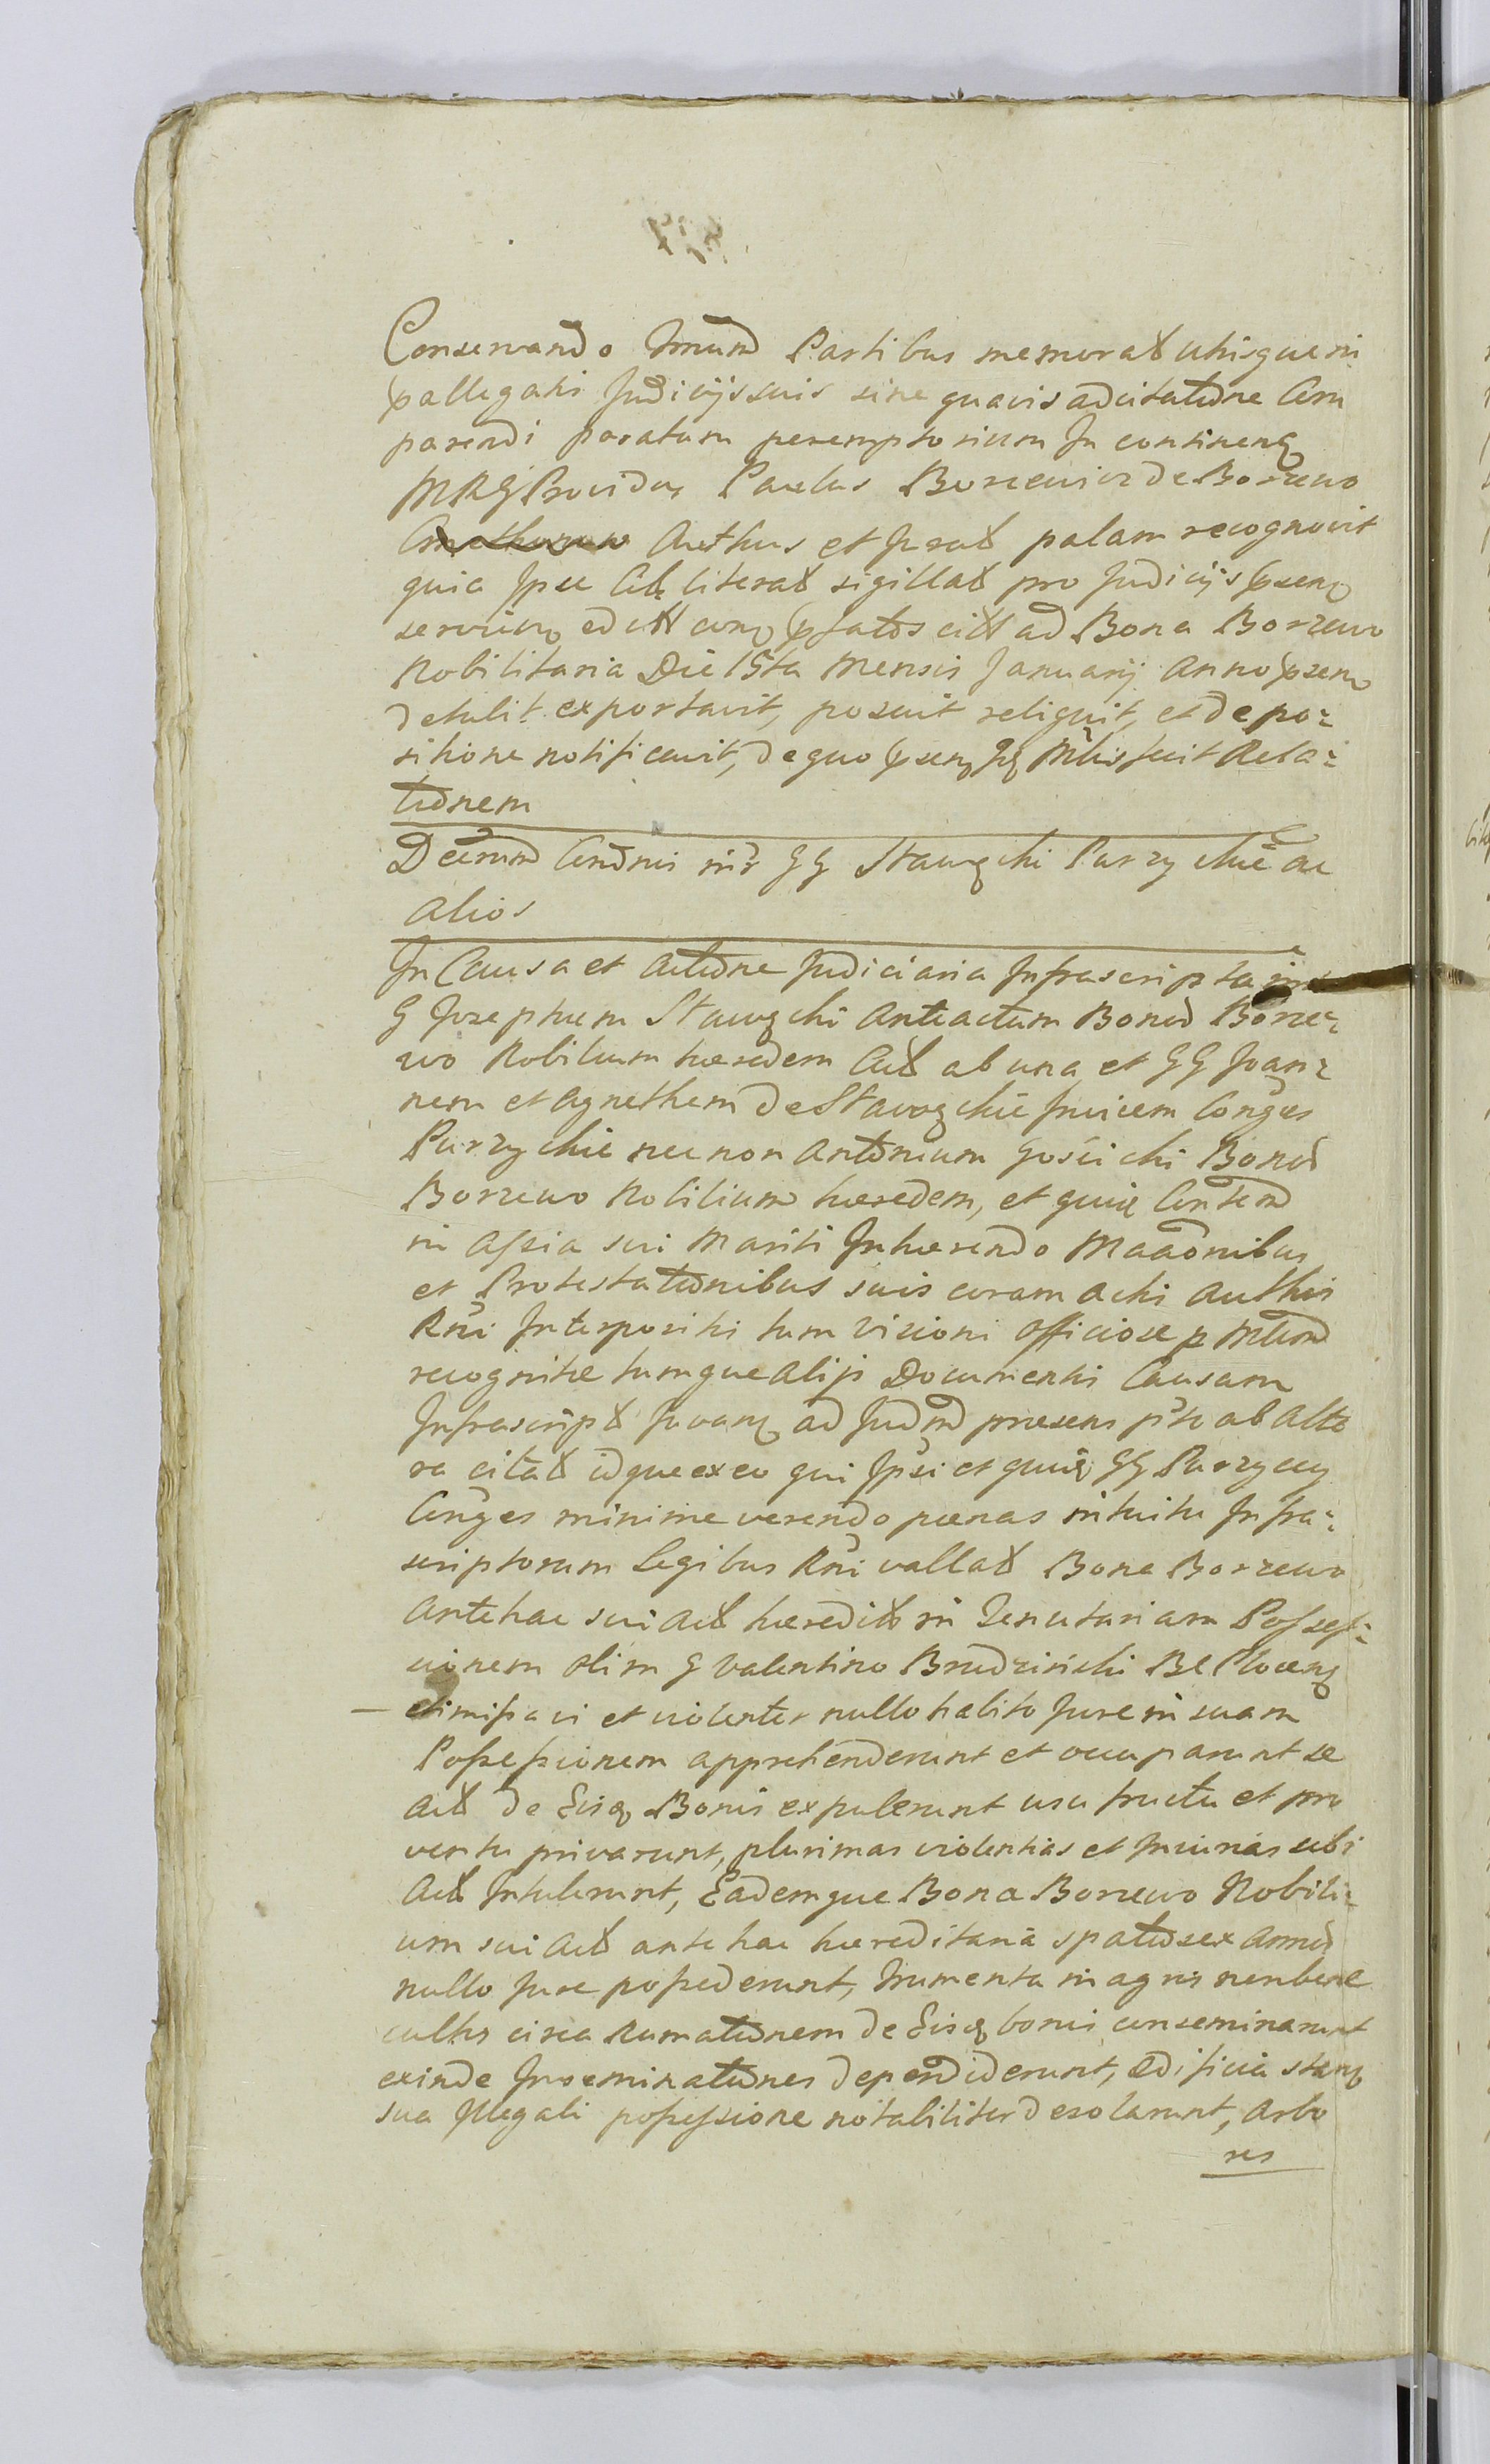 Conservando Tmum Partibus memorat utrisque in
pallegatis Judicijs suis sine quavis adcitatione Com
parendi paratum peremptorium In continenq
MRG Providus Paulus Borcewicz de Borzewo
Authus et Jurat palam recognovit
quia Ipse Cit literat sigillat pro Judicijs psenq
servienq edit conq pfatos citt ad Bona Borzewo
Nobilitaria Die 15ta Mensis Januarij Anno psenq
detulit exportavit, posuit reliquit, et de po=
sitione notificavit, de quo psenq fecit Rela=
tionem
Decretum Condnis intr GG Stawsqchi Purzychie ac
alios
In Causa et Actione Judiciaria Infrascripta intr
G Josephum Stawqchi Anteactum Bonor Borze=
wo Nobilium hæredem Act ab una et GG Joan=
nem et Agnethem de Stawoqchie Invicem Conges
Purzychie nec non Antonium Gościchi Bonor
Borzewo Nobilium hæredem, et quid Consem
in Assia sui Mariti Inhærendo Maaonibus
et Protestationibus suis coram Actis Authis
Rni Interpositis tum Visioni officiose p Mlum
recognitæ tumque Alijs Documentis Causam
Infrascript Juvanq ad Judm præsens pte ab Alte
ra citat idque ex eo qui Ipsi et quid GG Purzyccy
Conges minime verendo pænas intuitu Infra=
scriptorum Legibus Rni vallat Bona Borzewo
Antehac sui Act hæredit in Tenutariam Posses=
sionem olim G Valentino Brudzińchi BC Plocenq
— dimissa vi et violenter nullo habito Jure in suam
Possessionem apprehenderunt et occuparunt se
Act de Eisq Bonis expulerunt usu fructu et pro
ventu privarunt, plurimas violentias et Iniurias sibi
Act Intulerunt, Eademque Bona Borzewo Nobili=
um sui Act antehac hæreditaria spatio sex Annor
nullo Jure possederunt, frumenta in agris non bene
cultis circa Rumationem de Eisq bonis conseminarunt
exinde Inseminationes dependiderunt, Ædificia stanq
sua Illegali possessione notabiliter desolarunt, Arbo
res